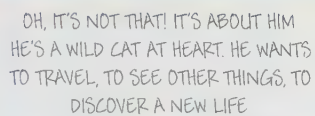 OH, IT'S NOT THAT! IT'S ABOUT HIM
HE'S A WILD CAT AT HEART. HE WANTS
TO TRAVEL, TO SEE OTHER THINGS, TO
DISCOVER A NEW LIFE